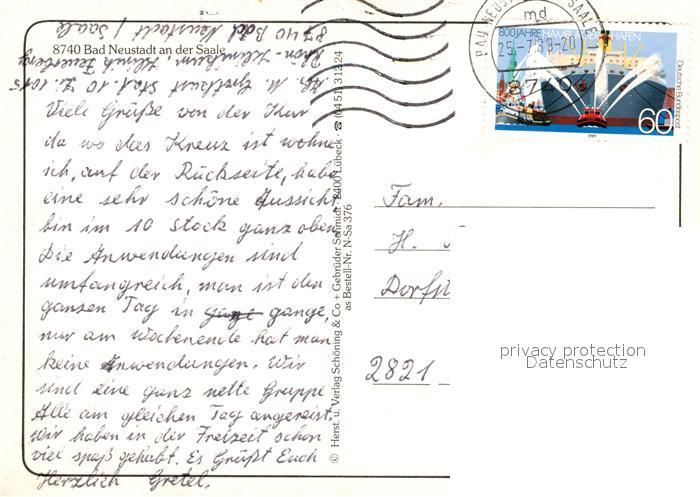 8740 Bad Neustadt an der Saale
Abs. M. Stat. 10 Z. 1015
Rhön-Klinikum, Klinik
8740 Bad Neustadt / Saale
Viele Grüße von der Kur
da wo das Kreuz ist wohne
ich, auf der Rückseite, habe
eine sehr schöne Aussicht
bin im 10 Stock ganz oben
Die Anwendungen sind
umfangreich, man ist den
ganzen Tag in gange,
nur am Wochenende hat man
keine Anwendungen. Wir
sind eine ganz nette Gruppe
Alle am gleichen Tag angereist.
Wir haben in der Freizeit schon
viel spaß gehabt. Es Grüßt Euch
Herzlich Gretel.
© Herst. u. Verlag Schöning & Co + Gebrüder Schmidt · 2400 Lübeck · ☎ (04 51) 3 12 24
as Bestell-Nr. N-Sa 376
BAD NEUSTADT SAALE
md
25.-7.89-20
8740
800 JAHRE HAMBURGER HAFEN
Deutsche Bundespost
60
1989
Fam.
H.
Dorfst
2821
privacy protection
Datenschutz